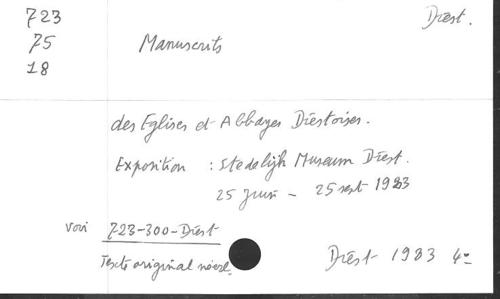 723
Diest.
75
Manuscrits
18
des Eglises et Abbayes Diestoises.
Exposition : Stedelijk Museum Diest.
25 Juin - 25 sept 1983
voir 723-300-Diest
Texte original néerl.
Diest 1983 4º